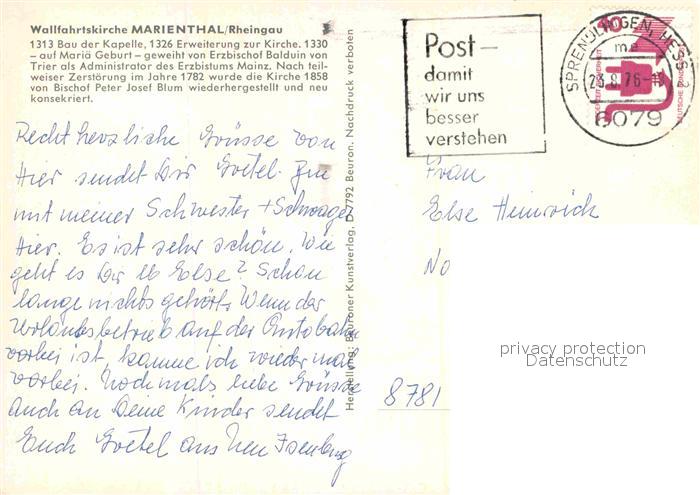 Wallfahrtskirche MARIENTHAL/Rheingau
1313 Bau der Kapelle, 1326 Erweiterung zur Kirche. 1330
– auf Mariä Geburt – geweiht von Erzbischof Balduin von
Trier als Administrator des Erzbistums Mainz. Nach teil-
weiser Zerstörung im Jahre 1782 wurde die Kirche 1858
von Bischof Peter Josef Blum wiederhergestellt und neu
konsekriert.
Recht herzliche Grüsse von
Hier sendet Dir Gretel. Bin
mit meiner Schwester + Schwager
Hier. Es ist sehr schön. Wie
geht es Dir lb Else? Schon
lange nichts gehört. Wenn der
Urlaubsbetrieb auf der Autobahn
vorbei ist, komme ich wieder mal
vorbei. Nochmals liebe Grüsse
auch an Deine Kinder sendet
Euch Gretel aus Neu Isenburg
Herstellung: Beuroner Kunstverlag, D-7792 Beuron. Nachdruck verboten
Post –
damit
wir uns
besser
verstehen
SPRENDLINGEN, HESS 2
me
23.8.76
6079
40
DEUTSCHE BUNDESPOST
Frau
Else Heinrich
No
8781
privacy protection
Datenschutz